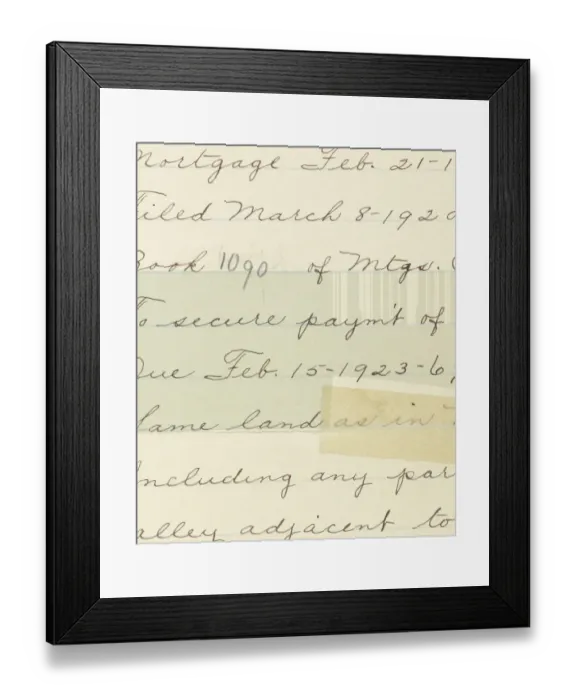 Mortgage Feb. 21-1
Filed March 8-1920
Book 1090 of Mtgs. (
To secure paym't of
Due Feb. 15-1923-6,
Same land as in
Including any par
alley adjacent to